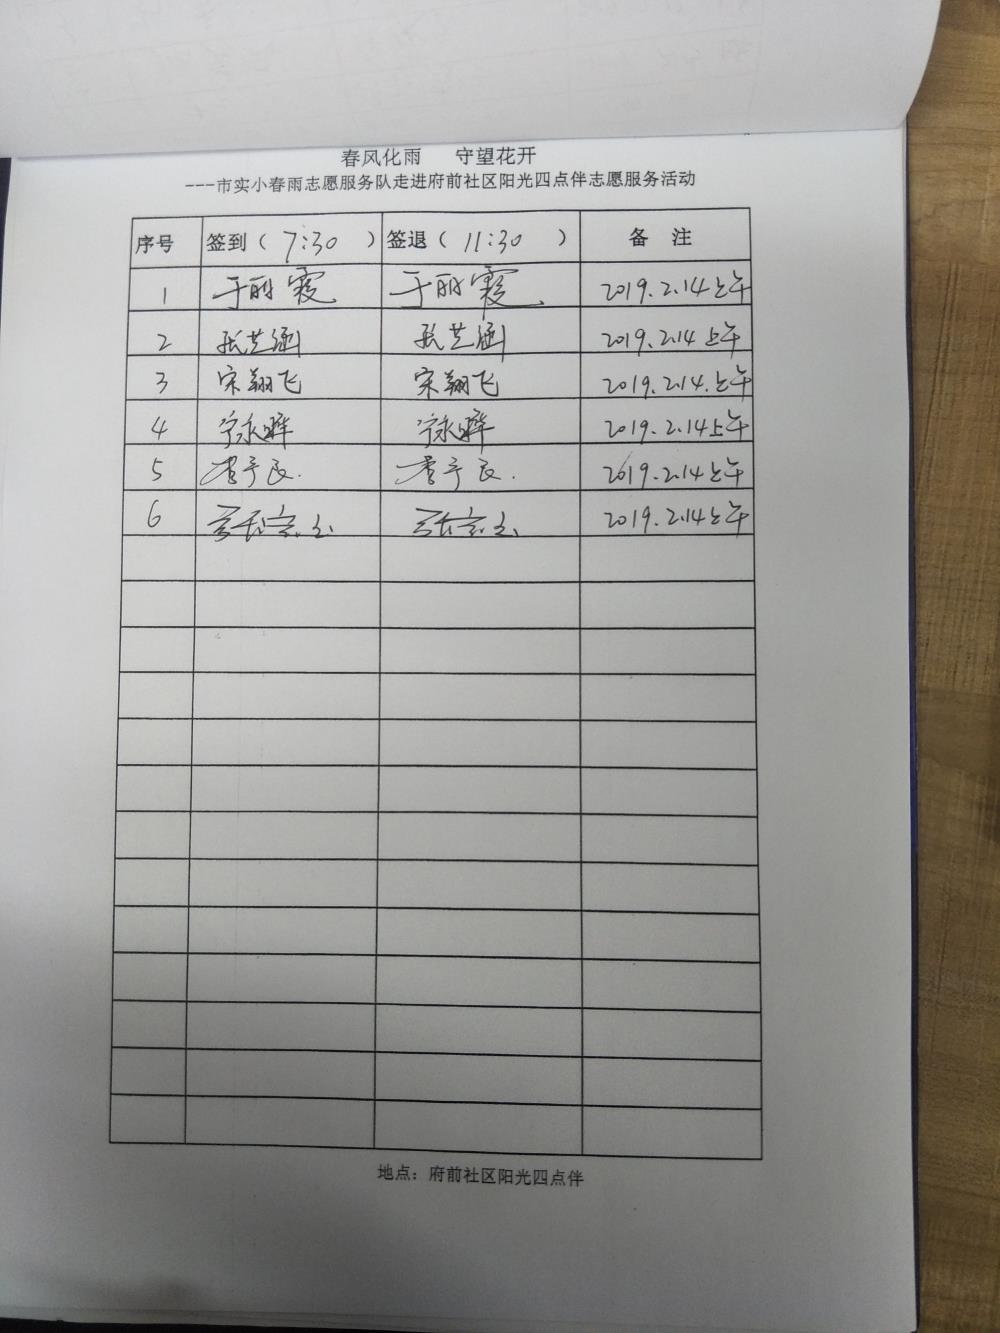 春风化雨 守望花开
---市实小春雨志愿服务队走进府前社区阳光四点伴志愿服务活动
序号 签到（7:30） 签退（11:30） 备 注
1 于丽霞 于丽霞 2019.2.14上午
2 张芝涵 张芝涵 2019.2.14上午
3 宋翔飞 宋翔飞 2019.2.14.上午
4 宁永晔 宁永晔 2019.2.14上午
5 李于良. 李于良. 2019.2.14上午
6 2019.2.14上午
地点：府前社区阳光四点伴